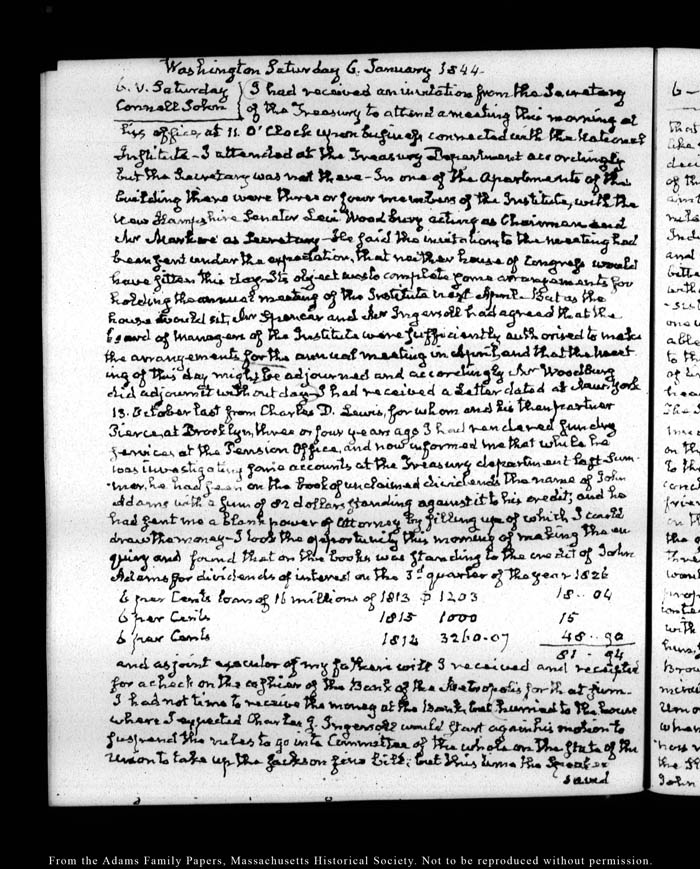 Washington Saturday 6. January 1844.
6. V. Saturday
Connell John
I had received an invitation from the Secretary
of the Treasury to attend a meeting this morning at
his office at 11. O'Clock upon business connected with the National
Institute - I attended at the Treasury Department accordingly
but the Secretary was not there - In one of the Apartments of the
building there were three or four members of the Institute, with the
New Hampshire Senator Levi Woodbury acting as Chairman and
Mr Markoe as Secretary - He said the invitations to the meeting had
been sent under the expectation, that neither house of Congress would
have sitten this day. Its object was to complete some arrangements for
holding the annual meeting of the Institute next April. But as the
house would sit, Mr Spencer and Mr Ingersoll had agreed that the
board of Managers of the Institute were sufficiently authorised to make
the arrangements for the annual meeting in April, and that the meet
ing of this day might be adjourned and accordingly Mr Woodbury
did adjourn it without day. I had received a Letter dated at New-York
13. October last from Charles D. Lewis, for whom and his then partner
Pierce, at Brooklyn, three or four years ago I had rendered sundry
services at the Pension Office, and now informed me that while he
was investigating some accounts at the Treasury department last Sum-
-mer, he had seen on the book of unclaimed dividends the name of John
Adams with a sum of 82 dollars standing against it to his credit; and he
had sent me a blank power of Attorney by filling up of which I could
draw the money - I took the opportunity this moment of making the en
quiry, and found that on the books was standing to the credit of John
Adams for dividends of interest on the 3d quarter of the year 1826
6 per Cents loan of 16 millions of 1813 $ 1203 18 .. 04
6 per Cents 1815 1000 15
6 per Cents 1814 3260.07 48 .. 90
81 - 94
and as joint executor of my father's will I received and receipted
for a check on the cashier of the Bank of the Metropolis for that sum.
I had not time to receive the money at the Bank, but hurried to the house
where I expected Charles J. Ingersoll would start again his motion to
suspend the rules to go into Committee of the whole on the State of the
Union to take up the Jackson fine bill; but this time the Speaker
saved
6-
From the Adams Family Papers, Massachusetts Historical Society. Not to be reproduced without permission.